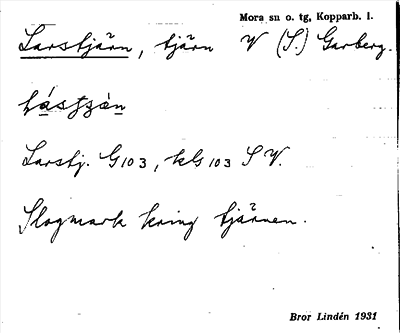 Mora sn o. tg, Kopparb. l.
Larstjärn, tjärn V (S.) Garberg.
Larstj. G103, kls 103 S V.
Slogmark kring tjärnen.
Bror Lindén 1931